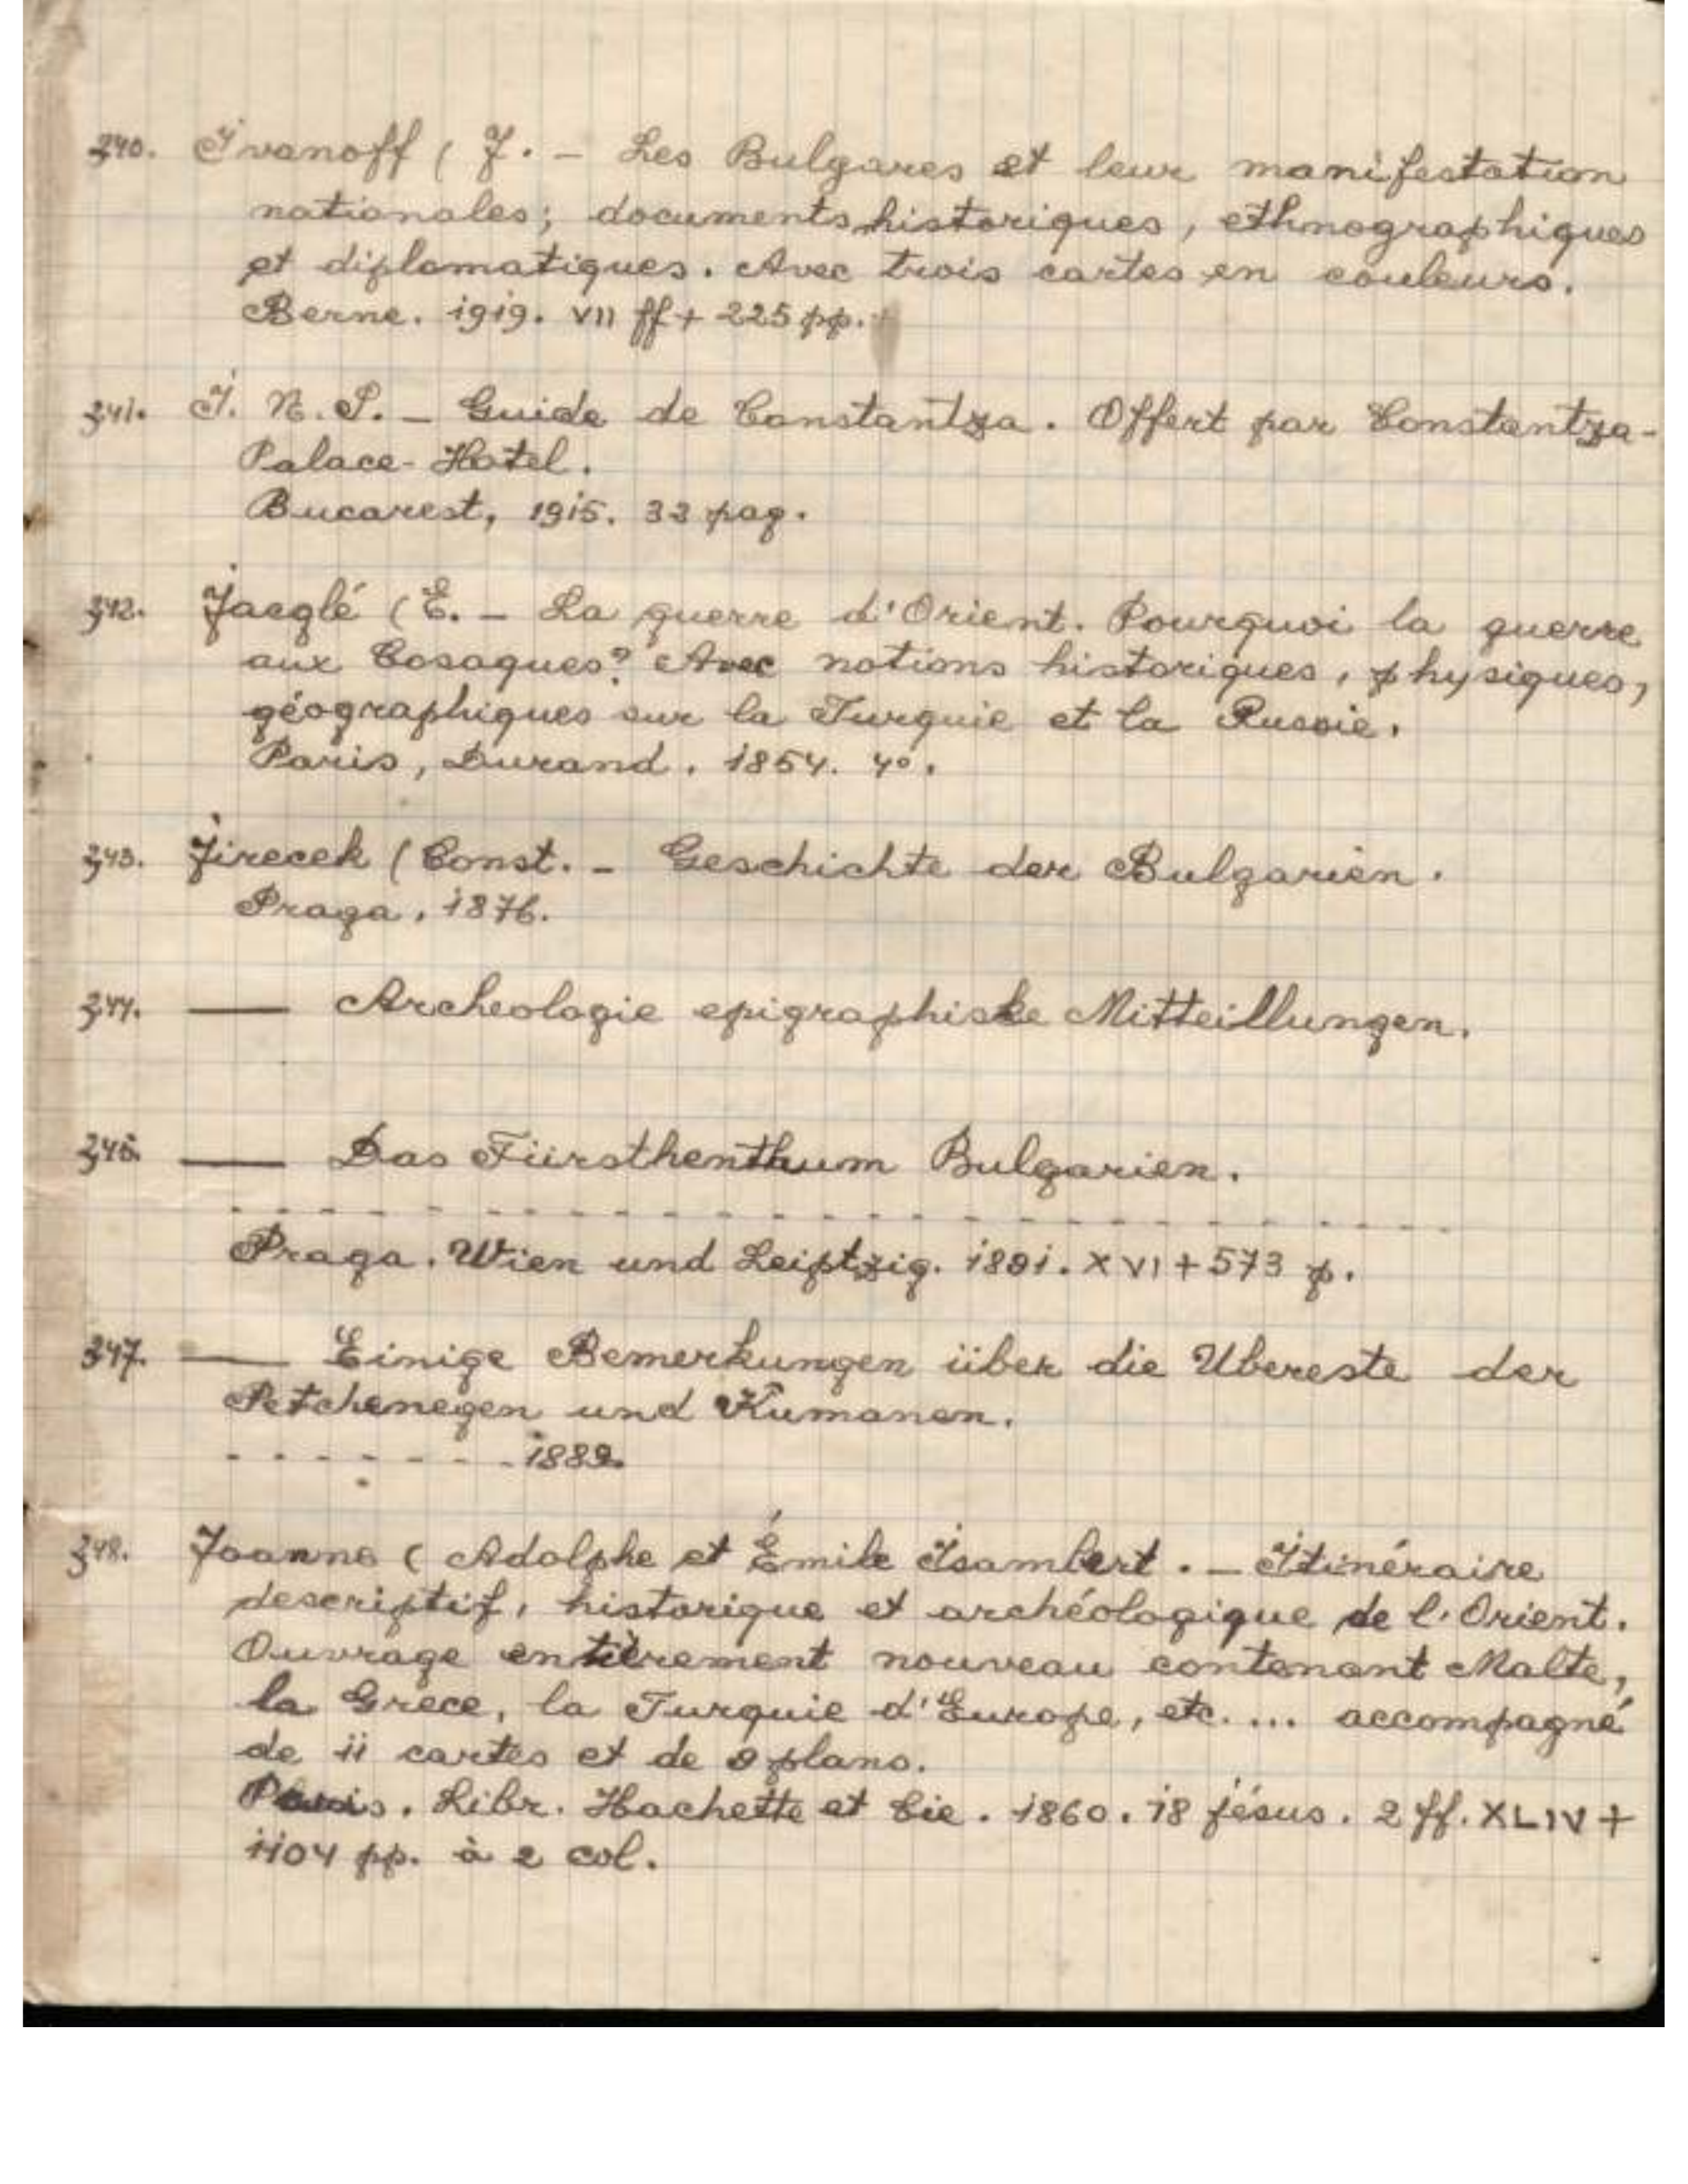 340. Ivanoff ( J. – Les Bulgares et leur manifestation
nationales; documents historiques, ethnographiques
et diplomatiques. Avec trois cartes en couleurs.
Berne. 1919. VII ff + 225 pp.
341. I. N. P. – Guide de Constantza. Offert par Constantza-
Palace-Hotel.
Bucarest, 1915. 33 pag.
342. Jaeglé ( E. – La guerre d'Orient. Pourquoi la guerre
aux Cosaques? Avec notions historiques, physiques,
géographiques sur la Turquie et la Russie.
Paris, Durand. 1854. 4º.
343. Jirecek ( Const. – Geschichte der Bulgarien.
Praga, 1876.
344. —— Archeologie epigraphiske Mitteillungen.
345. —— Das Fürsthenthum Bulgarien.
- - - - - - - - - - - - - - - - - - - - - -
Praga. Wien und Leiptzig. 1891. XVI + 573 p.
347. —— Einige Bemerkungen über die Ubereste der
Petchenegen und Kumanen.
- - - - - - - 1889.
348. Joanne ( Adolphe et Émile Isambert. – Itinéraire
descriptif, historique et archéologique de l'Orient.
Ouvrage entièrement nouveau contenant Malte,
la Grèce, la Turquie d'Europe, etc. ... accompagné
de 11 cartes et de plans.
Paris. Libr. Hachette et Cie. 1860. 18 jésus. 2 ff. XLIV +
1104 pp. à 2 col.